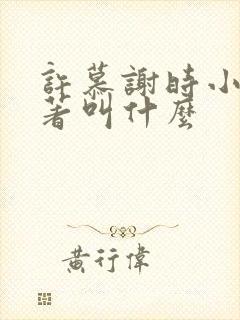 許慕謝時小
著叫什麼
黃行偉